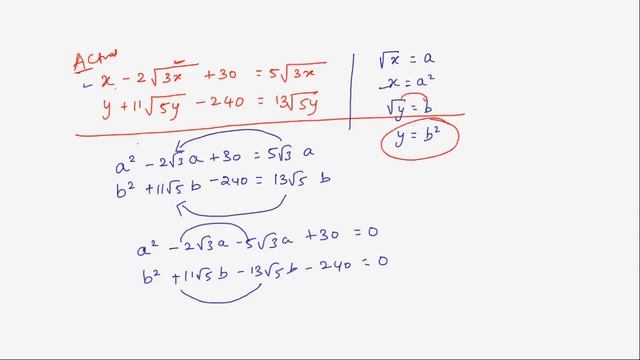 Actual
x - 2√3x + 30 = 5√3x
y + 11√5y - 240 = 13√5y
√x = a
x = a²
√y = b
y = b²
a² - 2√3 a + 30 = 5√3 a
b² + 11√5 b - 240 = 13√5 b
a² - 2√3a - 5√3a + 30 = 0
b² + 11√5 b - 13√5 b - 240 = 0